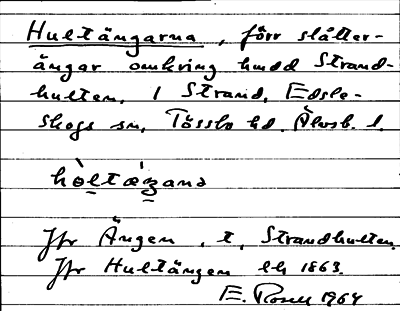 Hultängarna, förr slåtter-
ängar omkring hmdd Strand-
hulten, i Strand, Edsle-
skogs sn, Tössbo hd. Älvsb. l.
hòltæŋana
Jfr Ängen, t, Strandhulten.
Jfr Hultängen lk 1863.
E. Rosell 1964